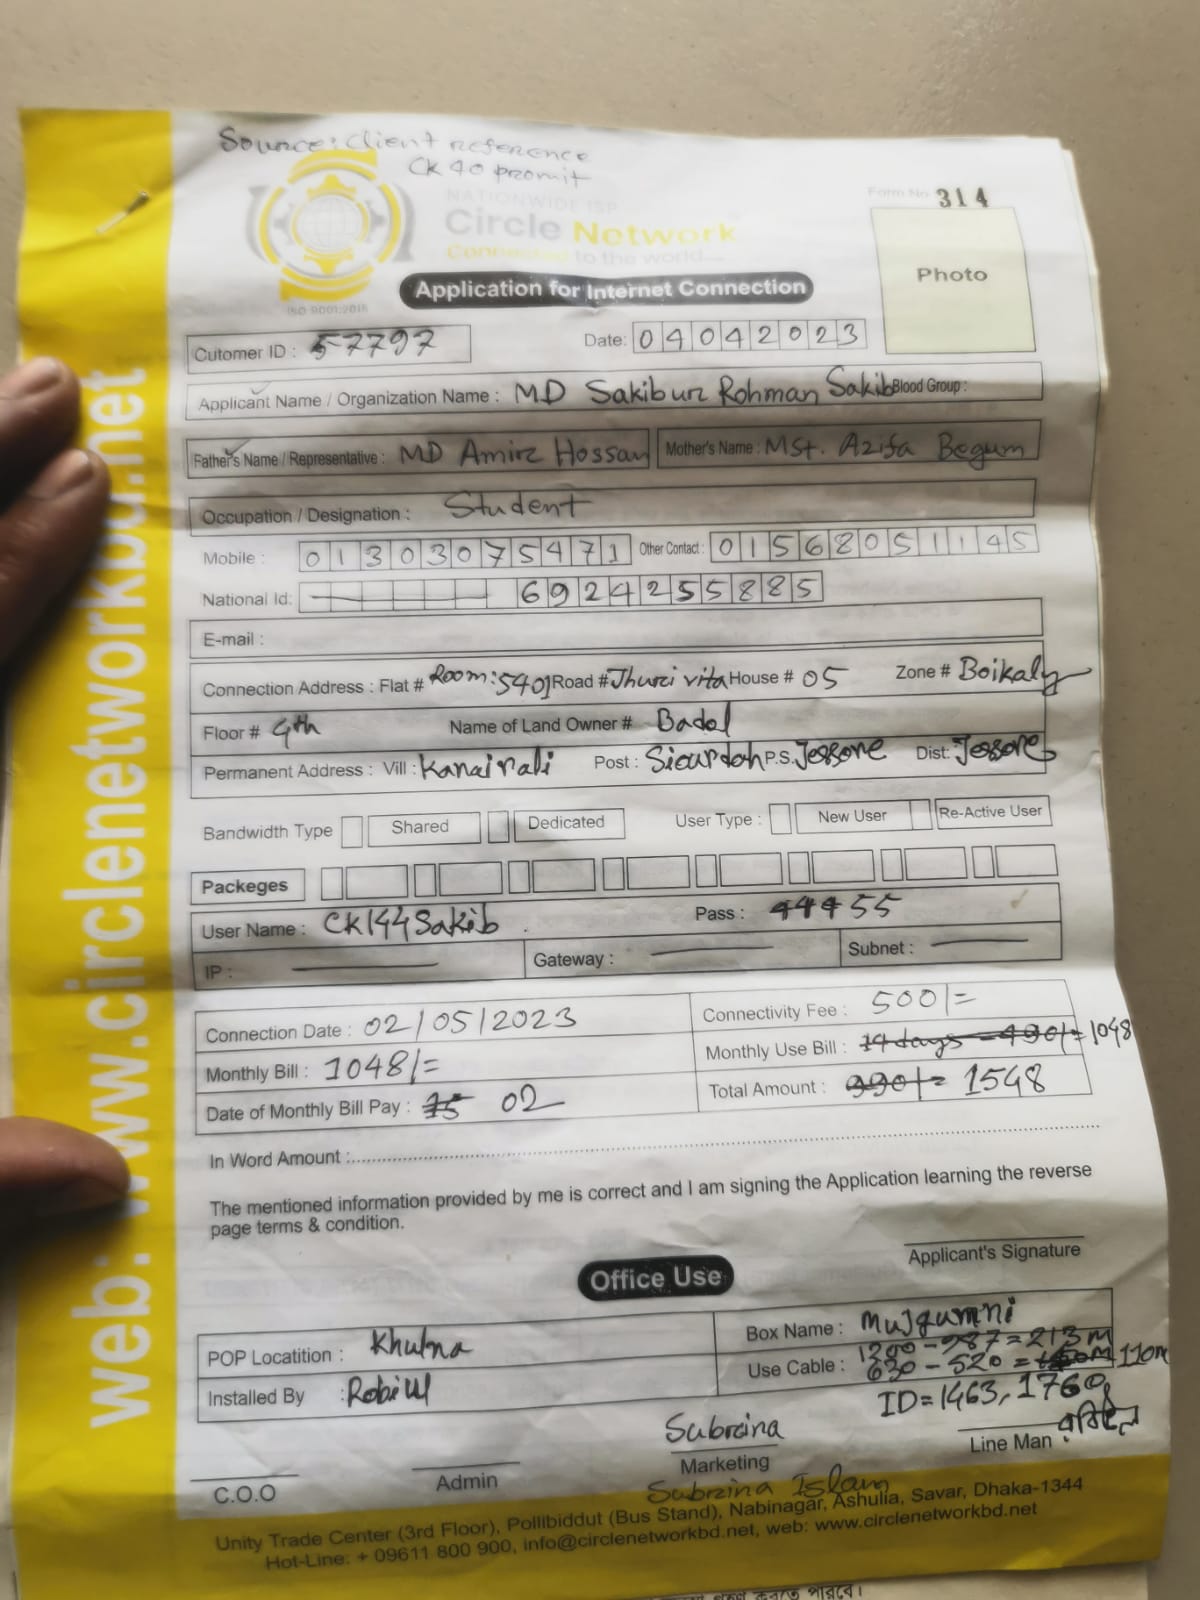 Source: Client reference
CK 40 promit
NATIONWIDE ISP
Circle Network
Connected to the world....
ISO 9001:2015
Form No 314
Photo
Application for Internet Connection
Cutomer ID : 57797
Date: 04042023
Applicant Name / Organization Name : MD Sakibur Rohman Sakib Blood Group :
Father's Name / Representative : MD Amir Hossan Mother's Name : MSt. Azifa Begum
Occupation / Designation : Student
Mobile : 01303075471 Other Contact : 01568051145
National Id: 6924255885
E-mail :
Connection Address : Flat # Room: 5401 Road # Jhuri vita House # 05 Zone # Boikaly
Floor # 4th Name of Land Owner # Badol
Permanent Address : Vill : Kanairali Post : Siourdah P.S. Jessore Dist: Jessore
Bandwidth Type Shared Dedicated User Type : New User Re-Active User
Packeges
User Name : CK144Sakib Pass : 44455
IP : Gateway : Subnet :
Connection Date : 02/05/2023 Connectivity Fee : 500/=
Monthly Bill : 1048/= Monthly Use Bill : 14 days = 490/= 1048
Date of Monthly Bill Pay : 15 02 Total Amount : 990/= 1548
In Word Amount :
The mentioned information provided by me is correct and I am signing the Application learning the reverse
page terms & condition.
Applicant's Signature
Office Use
POP Locatition : Khulna Box Name : Mujgunni
Use Cable : 1200 - 987 = 213m
630 - 520 = 110m
Installed By : Robiul ID = 1463, 1760
Subrina
Line Man :
C.O.O Admin Marketing
Subrina Islam
Unity Trade Center (3rd Floor), Pollibiddut (Bus Stand), Nabinagar, Ashulia, Savar, Dhaka-1344
Hot-Line: + 09611 800 900, info@circlenetworkbd.net, web: www.circlenetworkbd.net
web: www.circlenetworkbd.net
করতে পারবে।